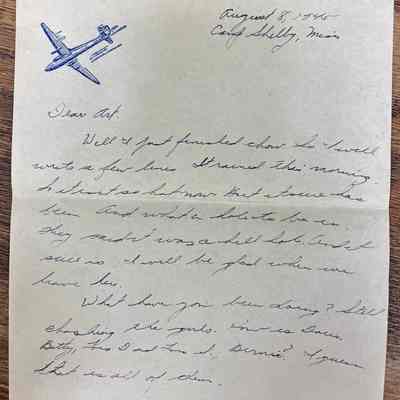 August 8, 1945
Camp Shelby, Miss
Dear Art.
Well I just finished chow so I will
write a few lines. It rained this morning
so it isn't so hot now. But it sure has
been. And what a hole to be in.
They said it was a hell hole. And it
sure is. I will be glad when we
leave here.
What have you been doing? Still
chasing the girls. How is
Betty, Bernie? I guess
that is all of them.